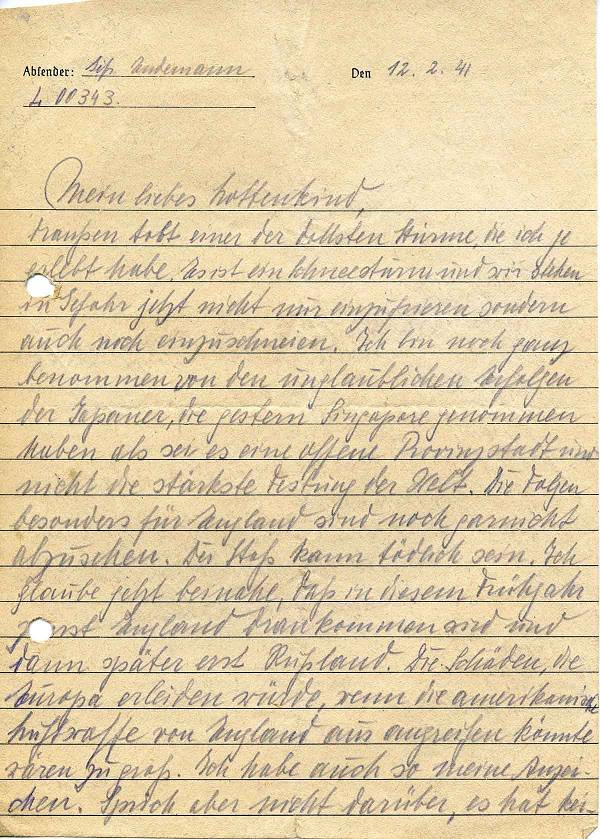 Absender: Lindemann
L 00343.
Den 12. 2. 41
Mein liebes Lottenkind,
draußen tobt einer der tollsten Stürme, die ich je
erlebt habe. Es ist ein Schneesturm und wir stehen
in Gefahr jetzt nicht nur einzufrieren sondern
auch noch einzuschneien. Ich bin noch ganz
benommen von den unglaublichen Erfolgen
der Japaner, die gestern Singapore genommen
haben als sei es eine offene Provinzstadt und
nicht die stärkste Festung der Welt. Die Folgen
besonders für England sind noch garnicht
abzusehen. Der Stoß kann tödlich sein. Ich
glaube jetzt beinahe, daß in diesem Frühjahr
zuerst England drankommen wird und
dann später erst Rußland. Die Schäden, die
Europa erleiden würde, wenn die amerikanische
Luftwaffe von England aus angreifen könnte
wären zu groß. Ich habe auch so meine Anzei-
chen. Sprich aber nicht darüber, es hat kei-